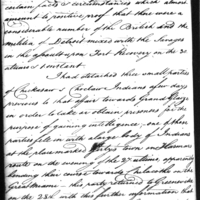 certain facts & circumstances which almost
amount to positive proof that there were a
considerable number of the British and the
militia of Detroit mixed with the Savages
in the assault upon Fort Recovery on the 30
ultimo & 1st instant
I had detached three small parties
of Chickasaw & Choctaw Indians a few days
previous to that affair towards Grand Glaize
in order to take or obtain prisoners for the
purpose of gaining intelligence, one of those
parties fell in with a large body of Indians
at the place marked Girtys town on Harmars
route on the evening of the 27 ultimo apparently
bending their course towards Chilacothe on the
Great Miami, this party returned to Greeneville
on the 28th with this further information that